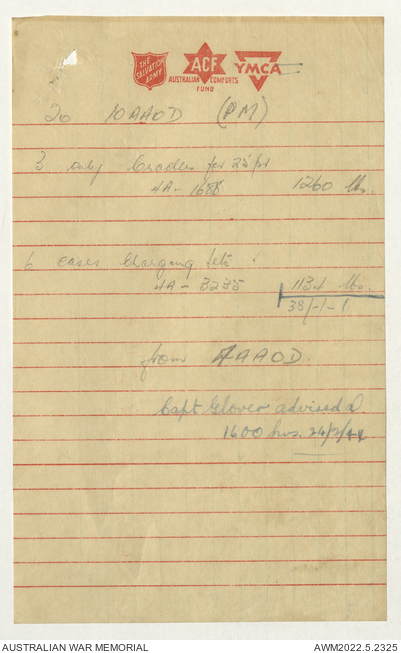 THE SALVATION ARMY
ACF
AUSTRALIAN COMFORTS FUND
YMCA
To 10AAOD (PM)
3 only Cradles for 25 pr
4A - 1688 1260 lbs.
6 cases Charging Sets
4A - 3235 lbs.
38/-1-1
from 4AAOD.
Capt Glover advised
1600 hrs. 24/2/44
AUSTRALIAN WAR MEMORIAL
AWM2022.5.2325